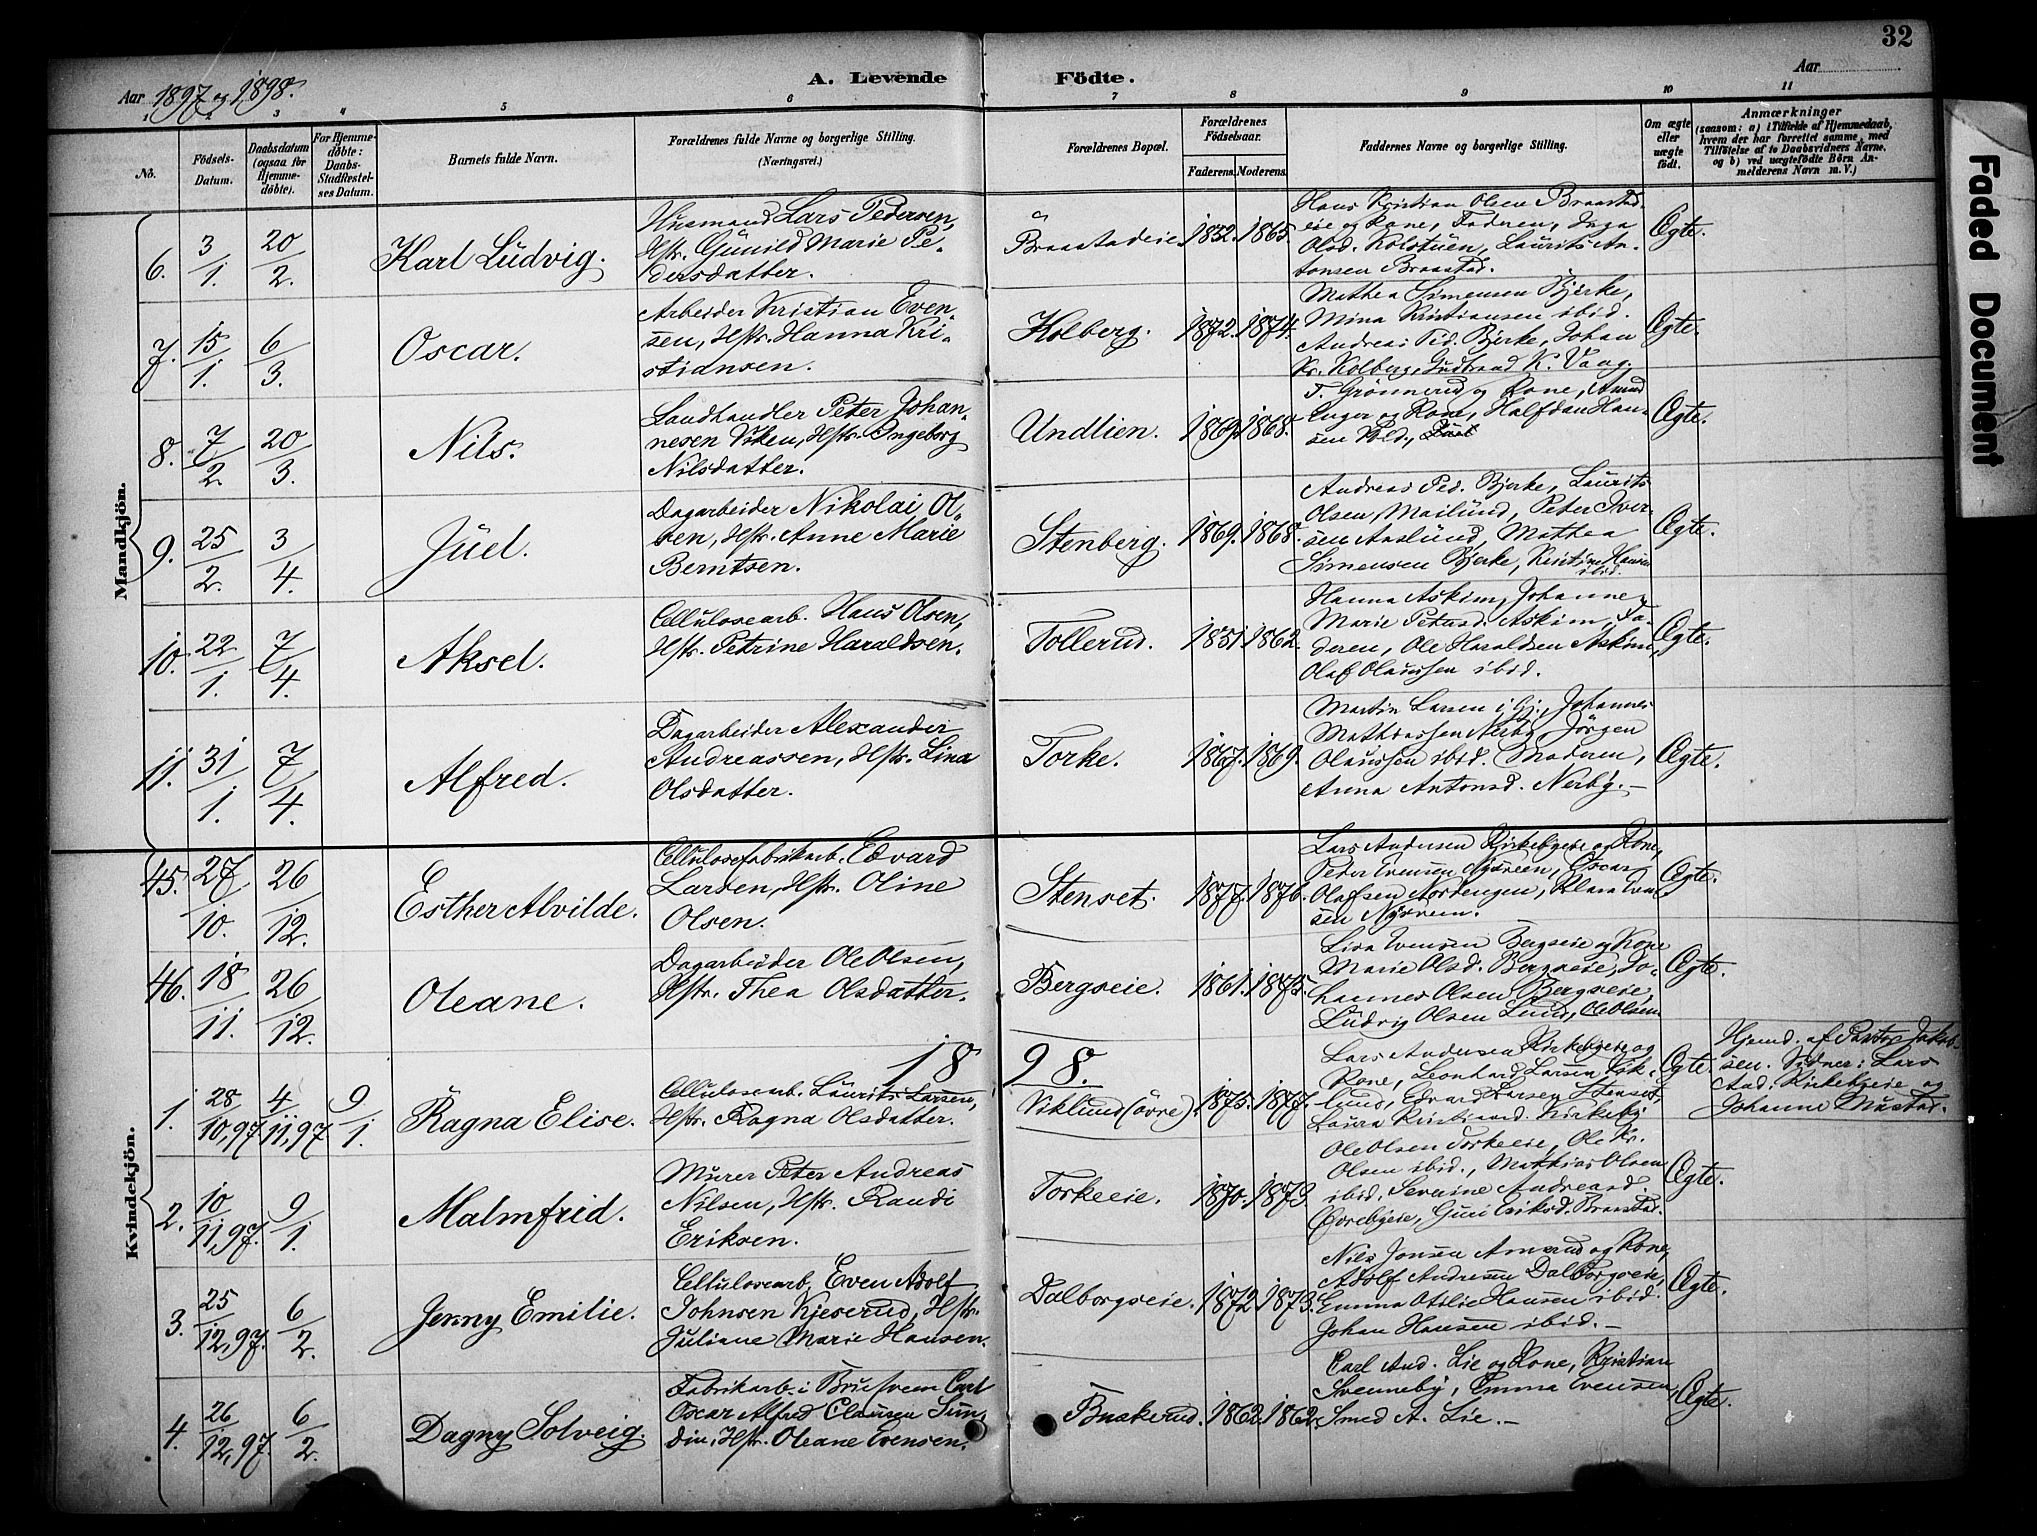 32
Aar 1897 og 1898.
A. Levende Födte.
Aar
1 2 3 4 5 6 7 8 9 10 11
No.
Födsels-Datum.
Daabsdatum (ogsaa for Hjemme-döbte).
For Hjemme-döbte: Daabs-Stadfæstel-ses Datum.
Barnets fulde Navn.
Forældrenes fulde Navne og borgerlige Stilling.
(Næringsvei.)
Forældrenes Bopæl.
Forældrenes Födselsaar.
Faderens. Moderens.
Faddernes Navne og borgerlige Stilling.
Om ægte eller uægte født.
Anmærkninger
(saasom: a) i Tilfælde af Hjemmedaab,
hvem der har forrettet samme, med
Tilföielse af to Daabsvidners Navne,
og b) ved uægtefödte Börn An-
melderens Navn m. V.)
Faded Document
Mandkjön.
6. 3/1 20/2 Karl Ludvig.
Husmand Lars Pedersen,
Hstr. Gunild Marie Pe-
dersdatter.
Braastadeie. 1832. 1865.
Hans Kristian Olsen Braastad-
eie og Kone, Faderen, Inga
Olsd. Kolstuen, Laurits An-
tonsen Braastad.
Ægte.
7. 15/1. 6/3. Oscar.
Arbeider Kristian Even-
sen, Hstr. Hanna Kri-
stiansen.
Kolberg. 1872. 1874.
Mathea Simensen Bjerke,
Mina Kristiansen ibid.
Andreas Ped. Bjerke, Johan
Kr. Kolberg, Gudbrand K. Vaag.
Ægte.
8. 7/2. 20/3. Nils.
Landhandler Peter Johan-
nesen Viken, Hstr. Ingeborg
Nilsdatter.
Undlien. 1869. 1868.
T. Grønnerud og Kone, Amund
Enger og Kone, Halfdan Han-
sen Vold,
Ægte.
9. 25/2. 3/4 Juel.
Dagarbeider Nikolai Ol-
sen, Hstr. Anne Marie
Berntsen.
Stenberg. 1869. 1868.
Andreas Ped. Bjerke, Laurits
Olsen Mailund, Peter Iver-
sen Aaslund, Mathea
Simensen Bjerke, Kristine Hansen
ibid.
Ægte.
10. 22/1. 7/4. Aksel.
Cellulosearb. Hans Olsen,
Hstr. Petrine Haraldsen.
Tollerud. 1851. 1862.
Hanna Askim, Johanne
Marie Petersd. Askim, Fa-
deren, Ole Haraldsen Askim,
Olaf Olaussen ibid.
Ægte.
11. 31/1. 7/4. Alfred.
Dagarbeider Alexander
Andreassen, Hstr. Lina
Olsdatter.
Torke. 1867. 1869.
Martin Larsen i Gj., Johannes
Mathiassen Nerby, Jörgen
Olaussen ibid. Moderen,
Anna Antonsd. Nerby. —
Ægte.
Kvindekjön.
45. 27/10. 26/12. Esther Alvilde.
Cellulosefabrikarb. Edvard
Larsen, Hstr. Oline
Olsen.
Stenset. 1877. 1876.
Lars Andersen Kirkebyeie og Kone,
Peder Evensen Nysveen, Oscar
Olafsen Nordengen, Klara Even-
sen Nysveen.
Ægte.
46. 18/11. 26/12. Oleane.
Dagarbeider Ole Olsen,
Hstr. Thea Olsdatter.
Bergseie. 1861. 1875.
Lisa Evensen Bergseie og Kone
Marie Olsd. Bergseie, Jo-
hannes Olsen Bergseie,
Ludvig Olsen Lund, Ole Olsen
Ægte.
1898.
1. 28/10,97 4/11,97 9/1. Ragna Elise.
Cellulosearb. Laurits Larsen,
Hstr. Ragna Olsdatter.
Viklund (övre). 1875. 1877.
Lars Andersen Kirkebyeie og
Kone, Leonhard Larsen Vik-
lund, Edvard Larsen Stenset,
Laura Kristiansd. Kirkeby
Ægte.
Hjemd. af Pastor Jakob-
sen. Vidner: Lars
And. Kirkebyeie og
Johanne Mustad.
2. 10/11,97. 9/1. Malmfrid.
Murer Peter Andreas
Nilsen, Hstr. Randi
Eriksen.
Torkeeie. 1870. 1879
Ole Olsen Torkeeie, Ole Kr.
Olsen ibid., Mathias Olsen
ibid. Severine Andreasd.
Øvrebyeie, Guri Eriksd. Braastad.
Ægte.
3. 25/12,97. 6/2. Jenny Emilie.
Cellulosearb. Even Adolf
Johnsen Kjeserud, Hstr.
Juliane Marie Hansen.
Dalborgseie. 1872. 1873.
Nils Jonsen Amerud og Kone,
Adolf Andresen Dalborgseie,
Emma Otilie Hansen ibid.
Johan Hansen ibid. —
Ægte.
4. 26/12,97. 6/2. Dagny Solveig.
Fabrikarb. i Brusveen Carl
Oscar Alfred Clausen Sun-
din, Hstr. Oleane Evensen.
Buskerud. 1862. 1862.
Carl And. Lie og Kone, Kristian
Svenneby, Emma Evensen,
Smed A. Lie. —
Ægte.